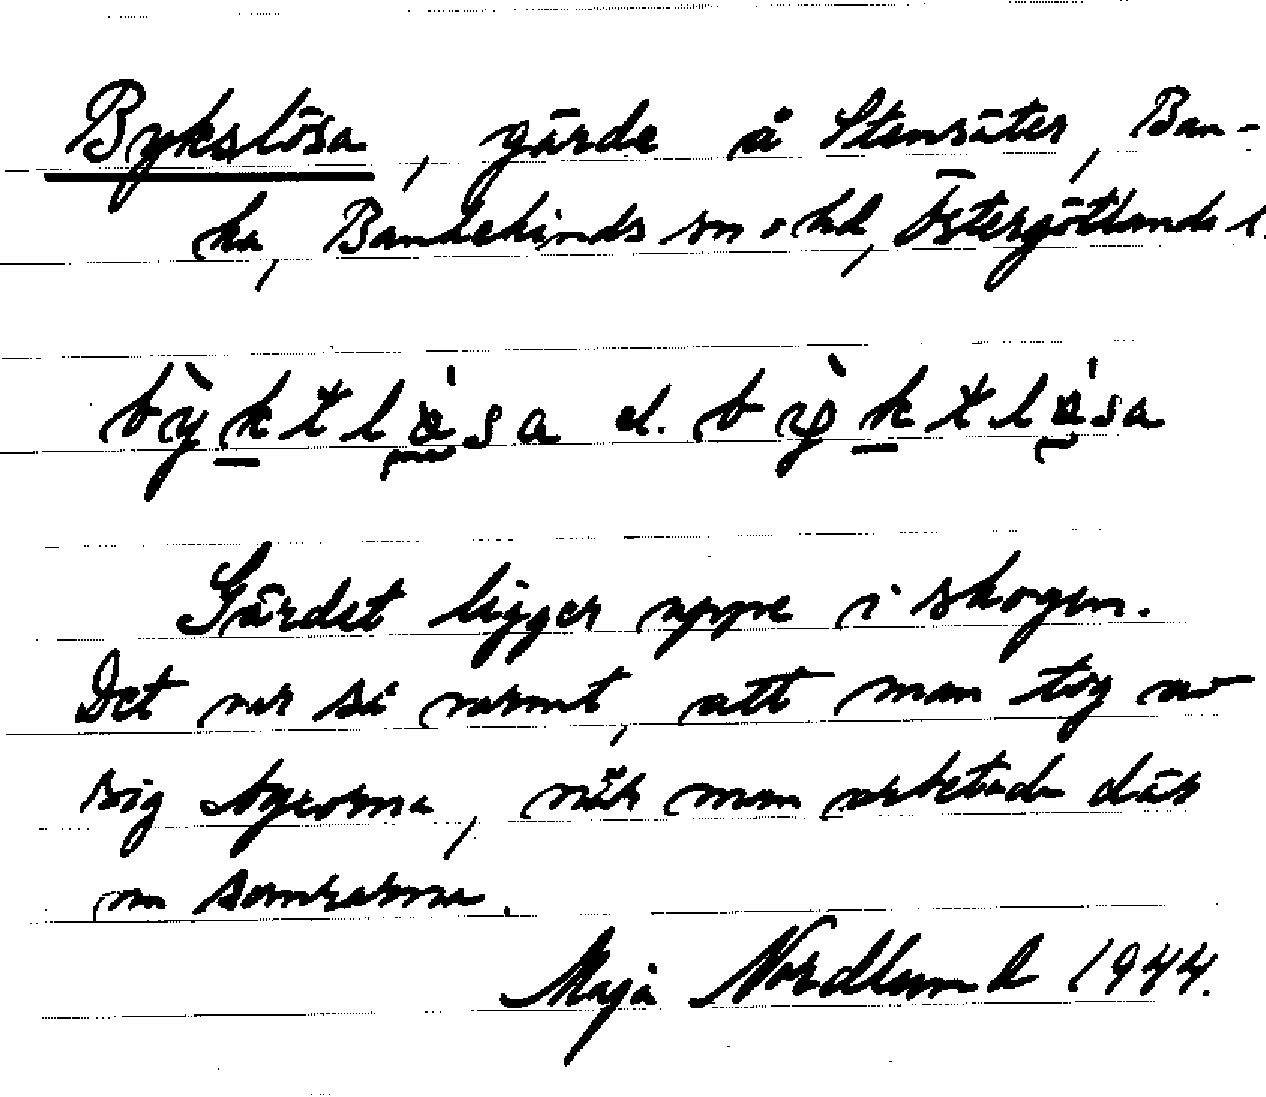 Bykslösa, gärde å Stensäter, Ban-
ka, Bankekinds sn o hd, Östergötlands l.
bỳkstlö́sa el. bỳkstlö́sa
Gärdet ligger uppe i skogen.
Det var så varmt, att man tog av
sig byxorna, när man arbetade där
om somrarna.
Maja Nordlund 1944.